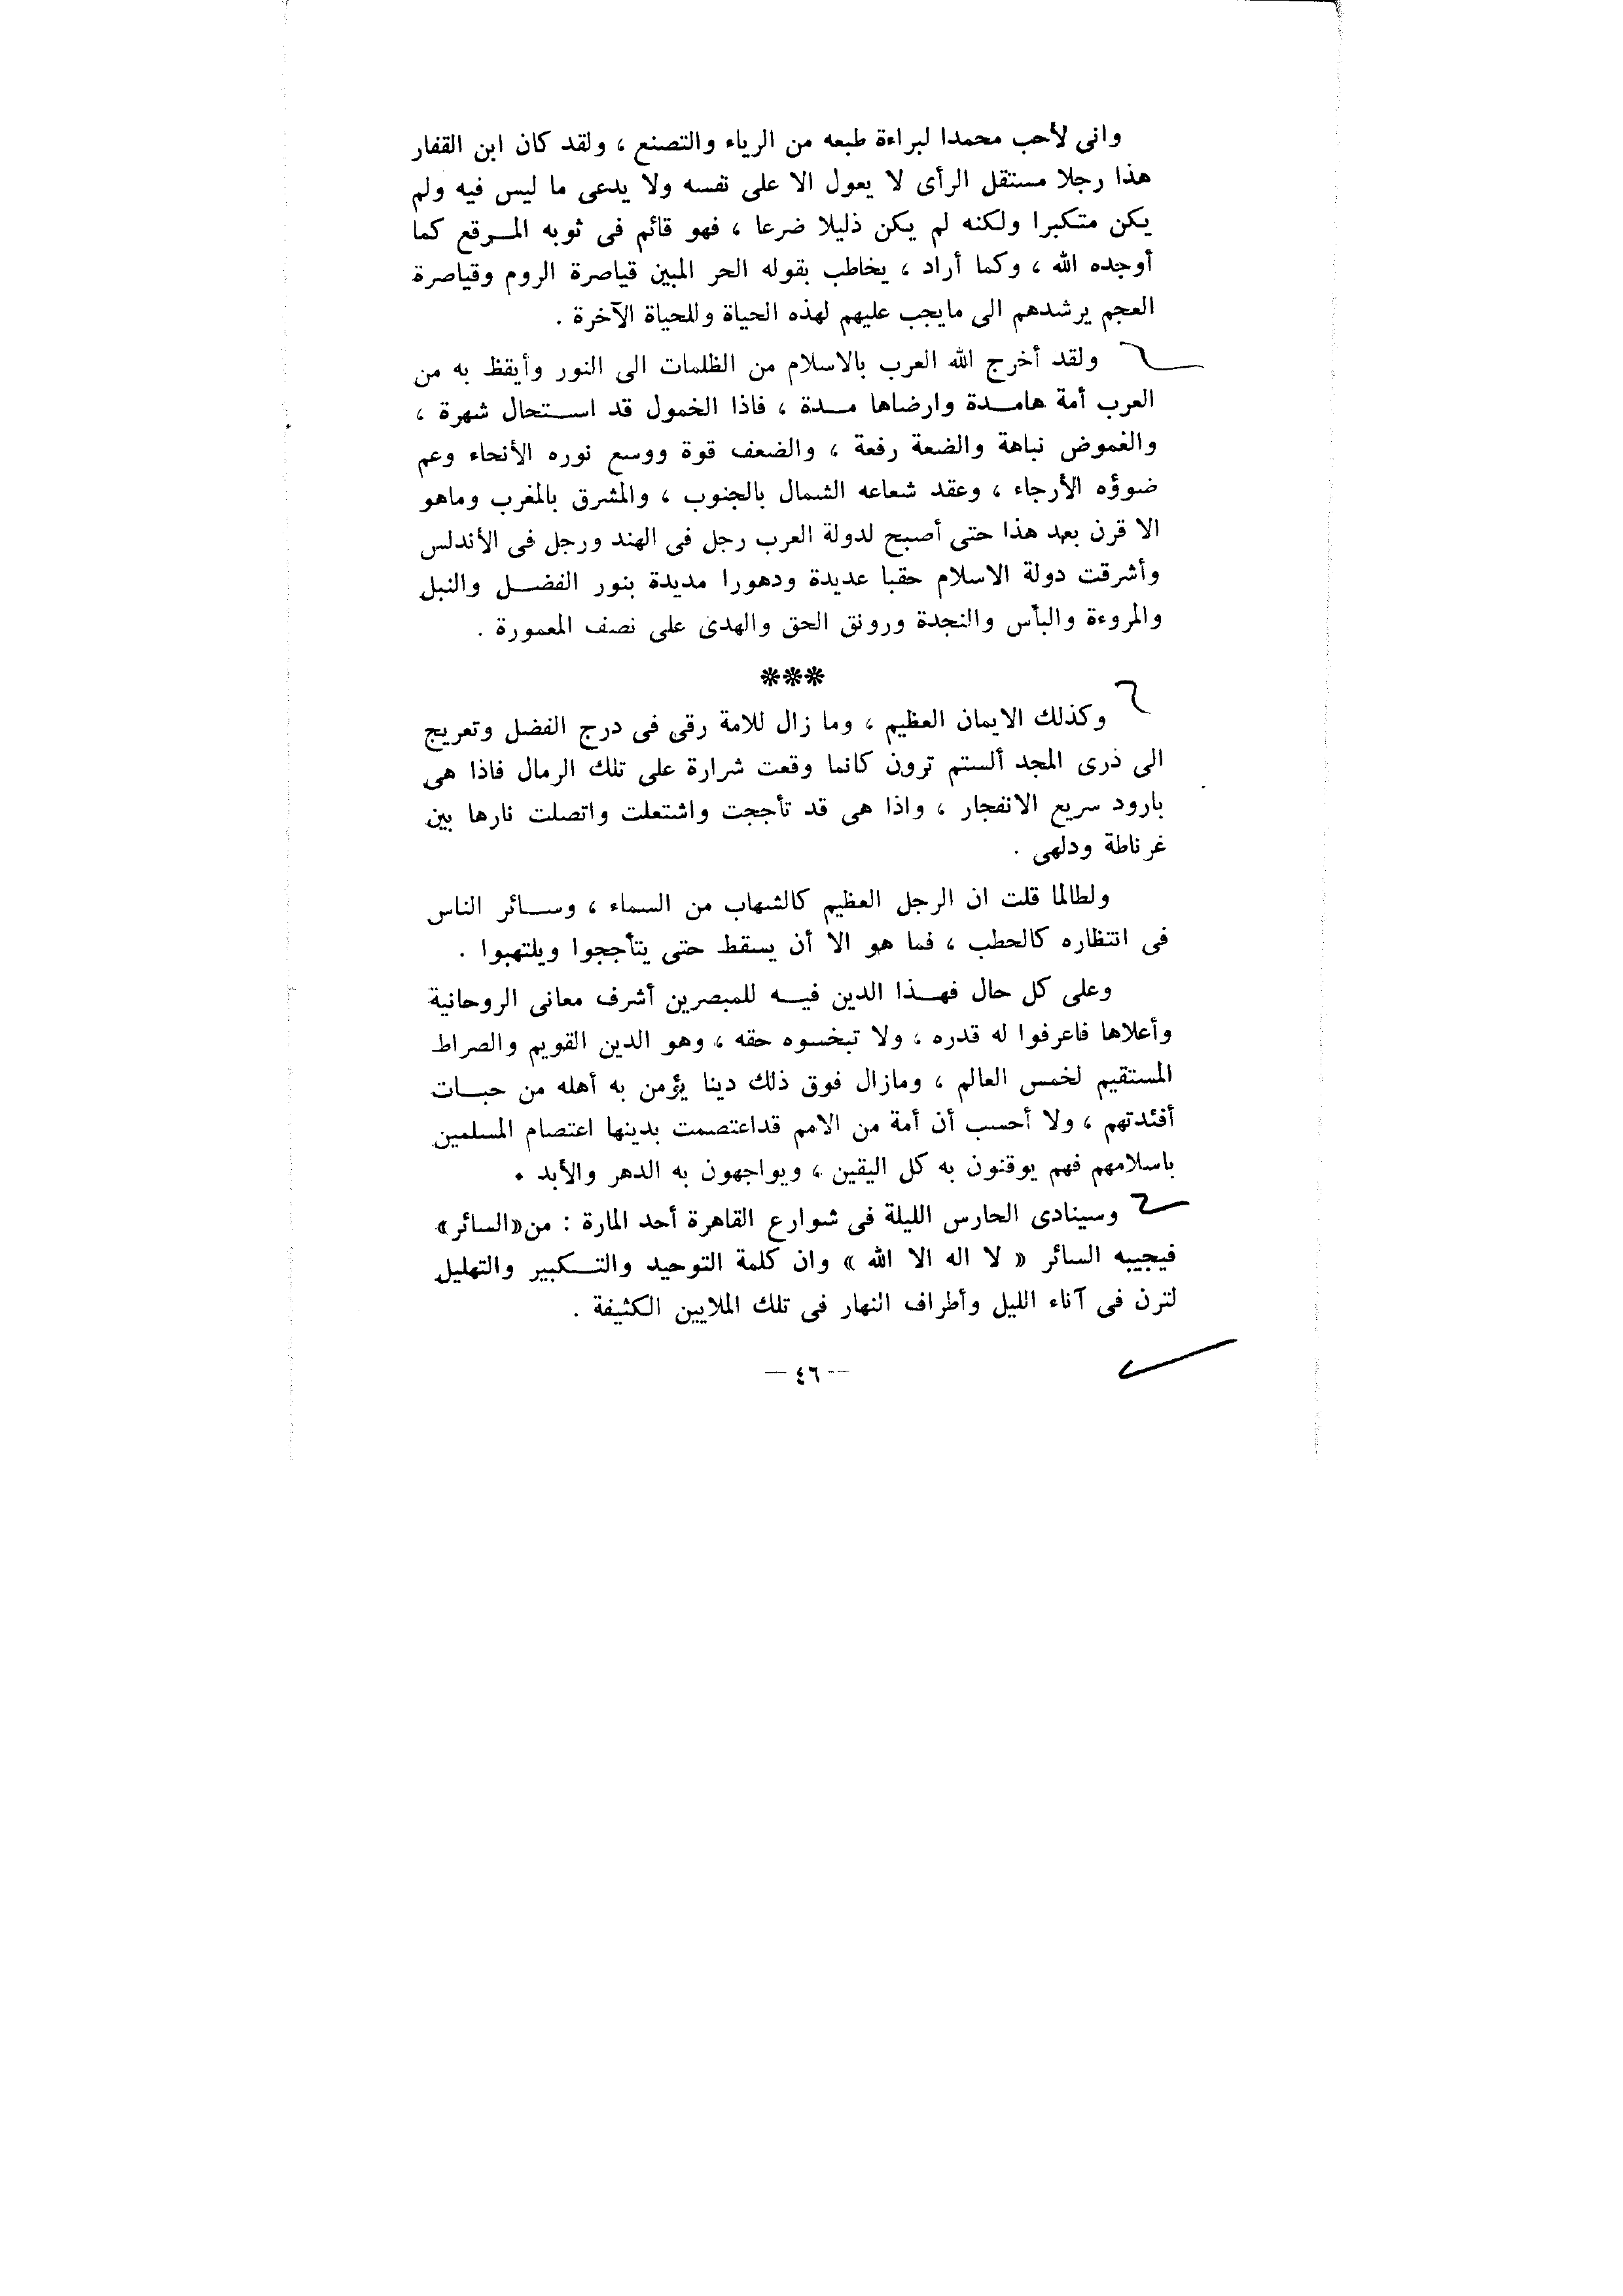 وانى لأحب محمدا لبراءة طبعه من الرياء والتصنع ، ولقد كان ابن القفار
هذا رجلا مستقل الرأى لا يعول الا على نفسه ولا يدعى ما ليس فيه ولم
يكن متكبرا ولكنه لم يكن ذليلا ضرعا ، فهو قائم فى ثوبه المرقع كما
أوجده الله ، وكما أراد ، يخاطب بقوله الحر المبين قياصرة الروم وقياصرة
العجم يرشدهم الى مايجب عليهم لهذه الحياة وللحياة الآخرة .
ولقد أخرج الله العرب بالاسلام من الظلمات الى النور وأيقظ به من
العرب أمة هامدة وارضاها مدة ، فاذا الخمول قد استحال شهرة ،
والغموض نباهة والضعة رفعة ، والضعف قوة ووسع نوره الأنحاء وعم
ضوؤه الأرجاء ، وعقد شعاعه الشمال بالجنوب ، والمشرق بالمغرب وماهو
الا قرن بعد هذا حتى أصبح لدولة العرب رجل فى الهند ورجل فى الأندلس
وأشرقت دولة الاسلام حقبا عديدة ودهورا مديدة بنور الفضل والنبل
والمروءة والبأس والنجدة ورونق الحق والهدى على نصف المعمورة .
***
وكذلك الايمان العظيم ، وما زال للامة رقى فى درج الفضل وتعريج
الى ذرى المجد ألستم ترون كانما وقعت شرارة على تلك الرمال فاذا هى
بارود سريع الانفجار ، واذا هى قد تأججت واشتعلت واتصلت نارها بين
غرناطة ودلهى .
ولطالما قلت ان الرجل العظيم كالشهاب من السماء ، وسائر الناس
فى انتظاره كالحطب ، فما هو الا أن يسقط حتى يتأججوا ويلتهبوا .
وعلى كل حال فهذا الدين فيه للمبصرين أشرف معانى الروحانية
وأعلاها فاعرفوا له قدره ، ولا تبخسوه حقه ، وهو الدين القويم والصراط
المستقيم لخمس العالم ، ومازال فوق ذلك دينا يؤمن به أهله من حبات
أفئدتهم ، ولا أحسب أن أمة من الامم قداعتصمت بدينها اعتصام المسلمين
باسلامهم فهم يوقنون به كل اليقين ، ويواجهون به الدهر والأبد .
وسينادى الحارس الليلة فى شوارع القاهرة أحد المارة : من«السائر»
فيجيبه السائر « لا اله الا الله » وان كلمة التوحيد والتكبير والتهليل
لترن فى آناء الليل وأطراف النهار فى تلك الملايين الكثيفة .
— ٤٦ —